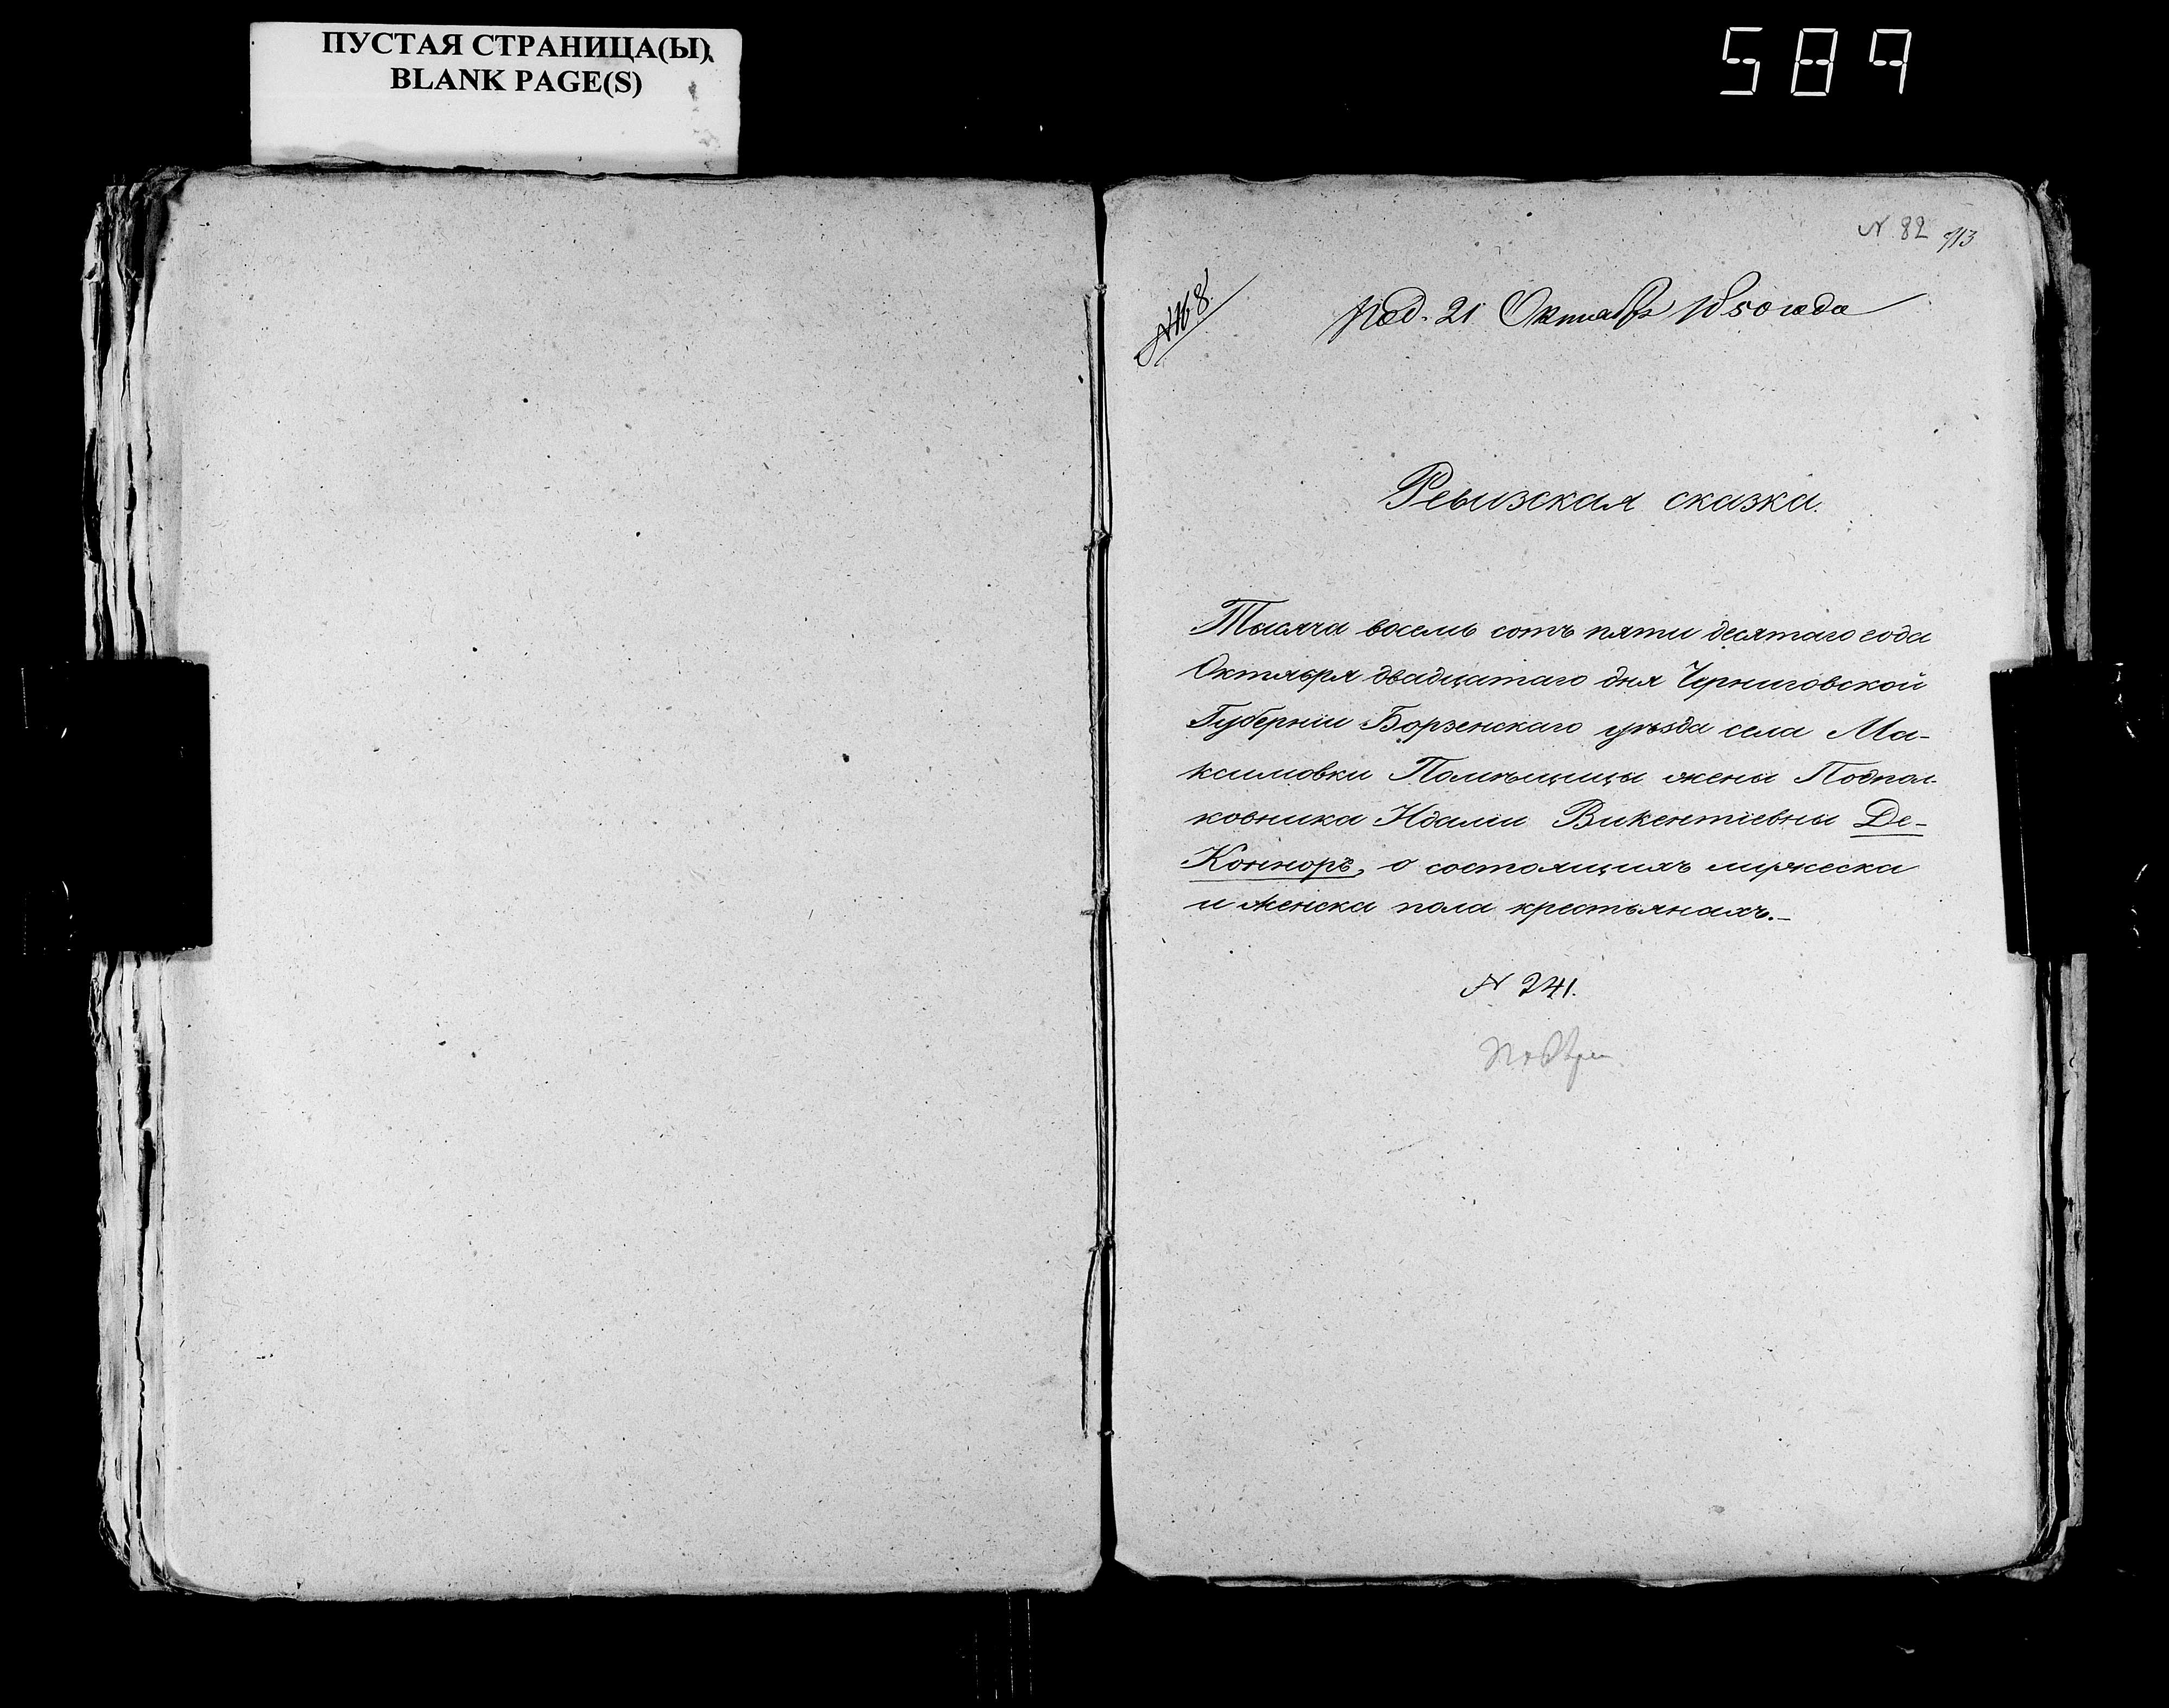 ПУСТАЯ СТРАНИЦА(Ы)
BLANK PAGE(S)
589
N 82 913
№ 8.
Под. 21 Октября 1850 года
Ревизская сказка.
Тысяча восемь сотъ пяти десятаго года
Октября двадцатаго дня Черниговской
Губерніи Борзенскаго уѣзда села Ма-
ксимовки Помѣщицы жены Подпол-
ковника Идаліи Викентіевны Де-
Конноръ, о состоящихъ мужеска
и женска пола крестьянахъ.-
N 241.